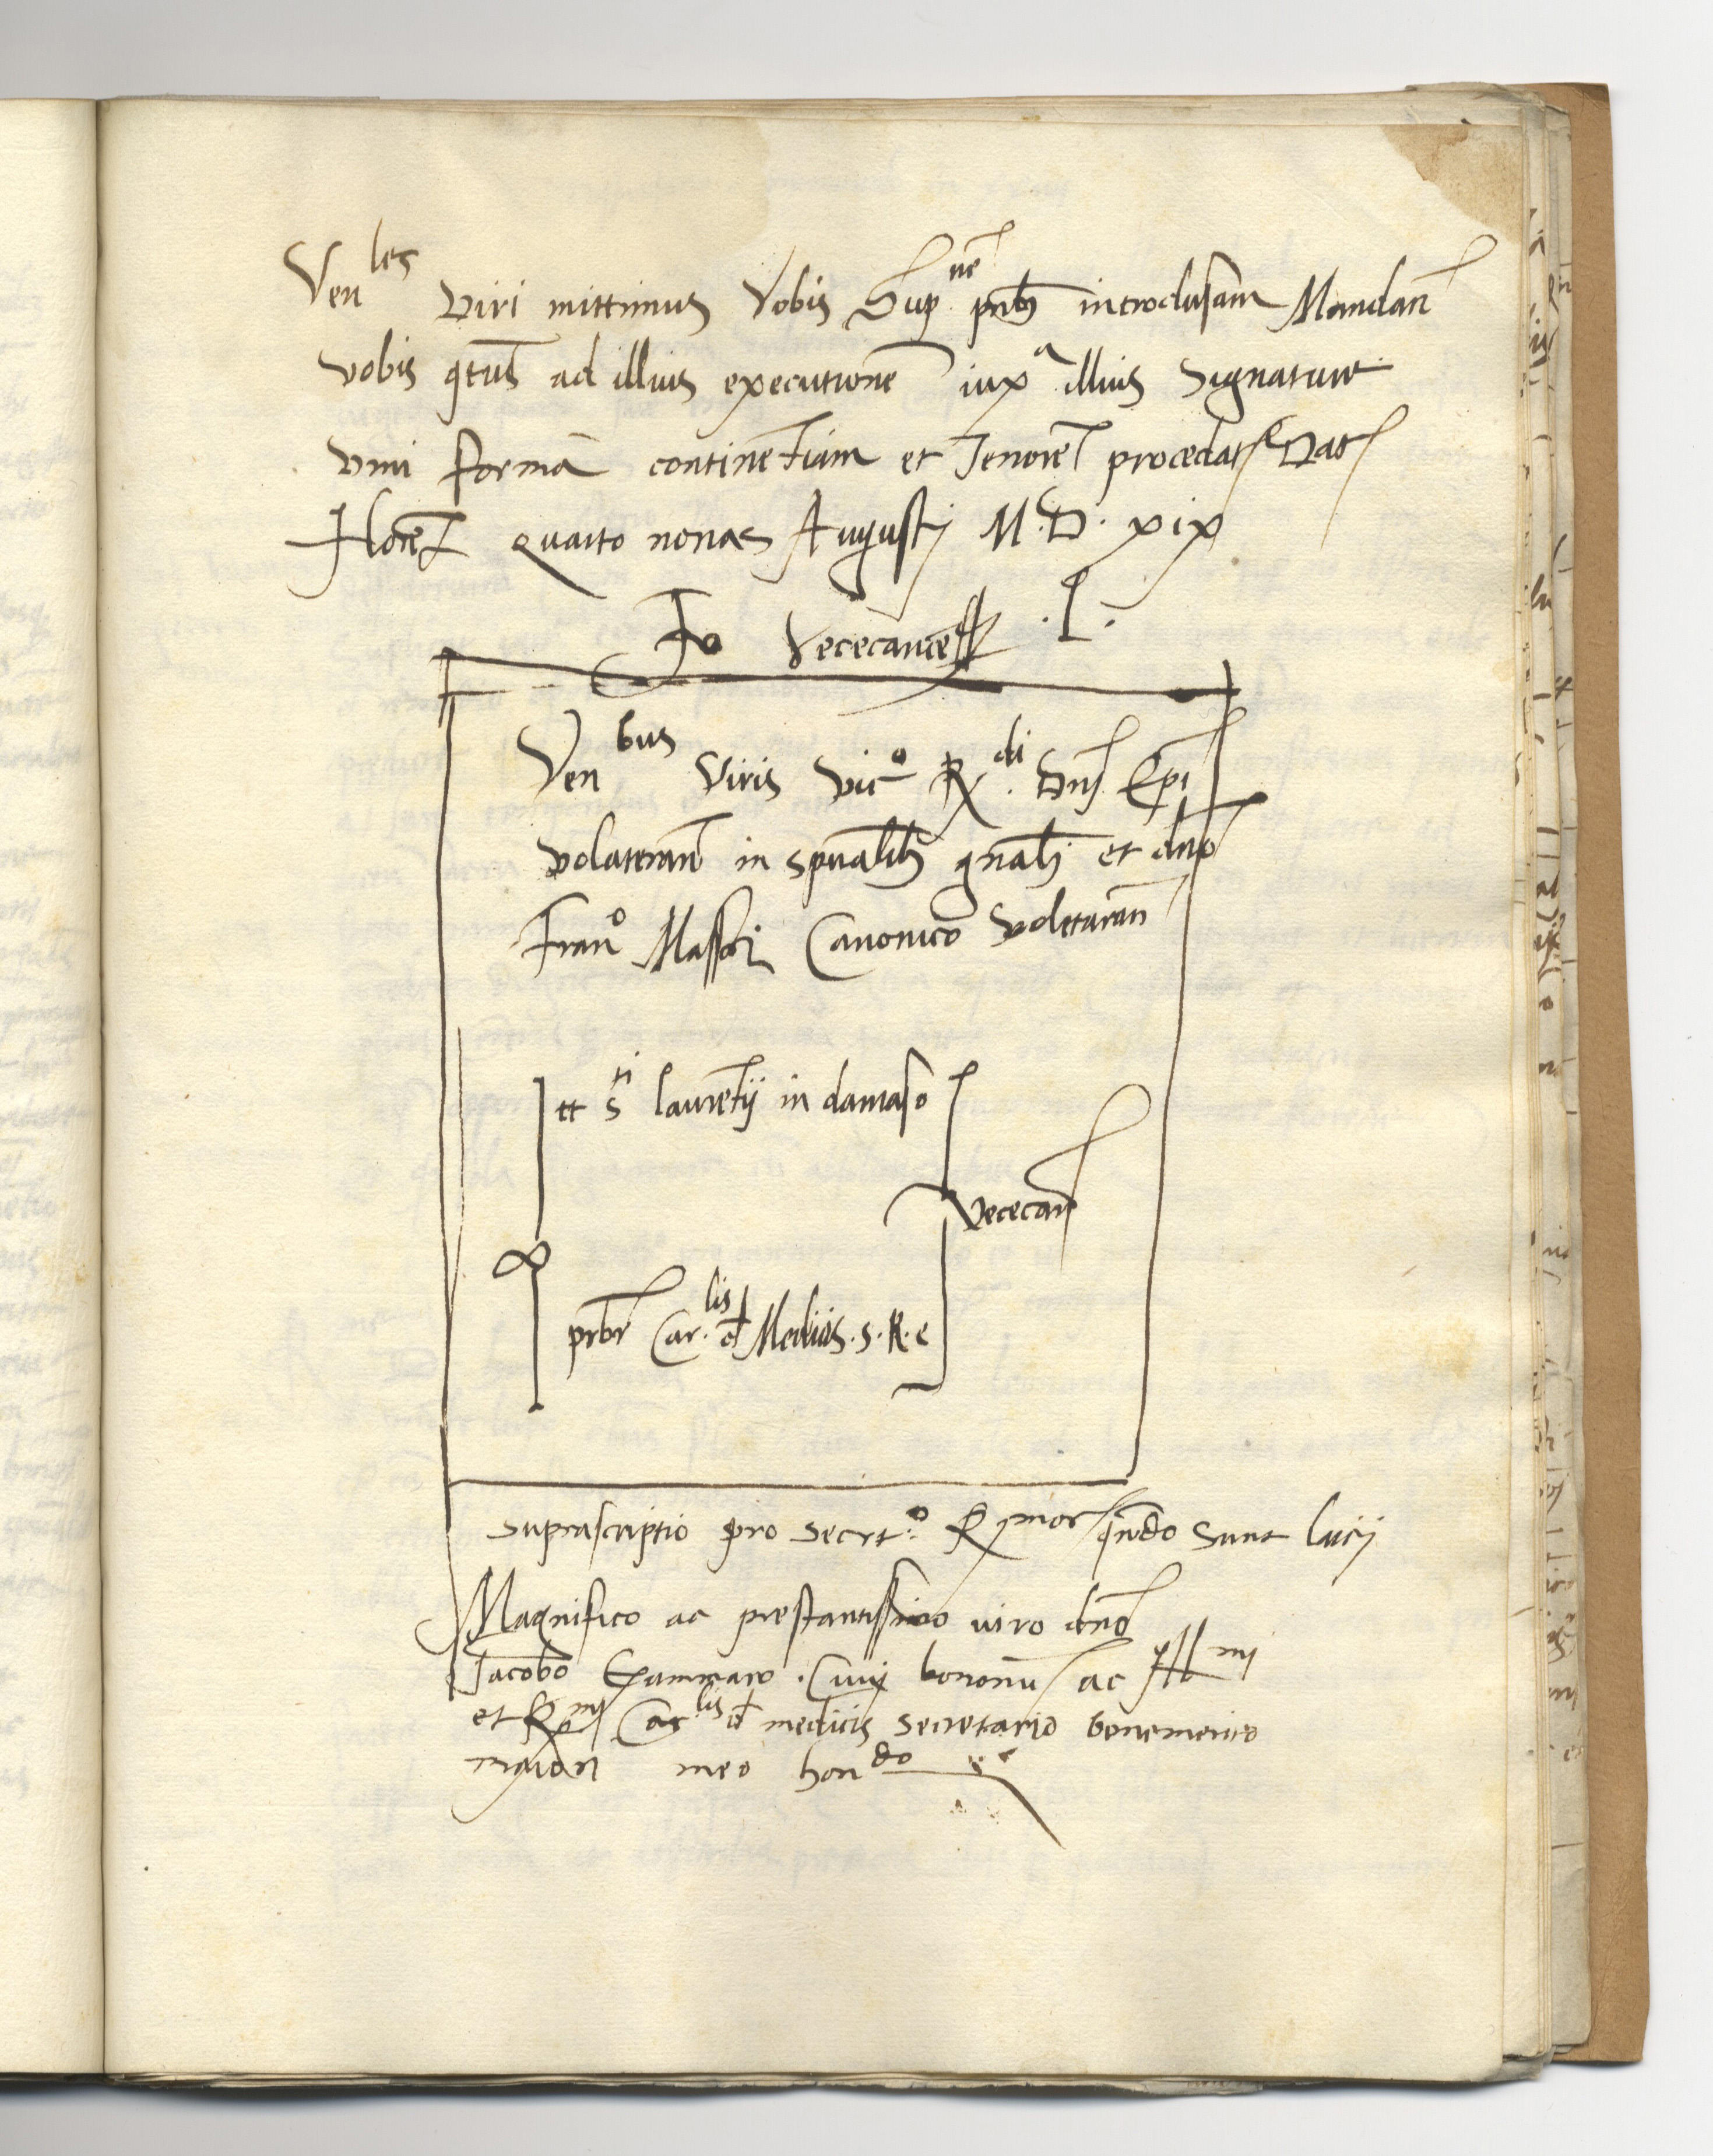 Ven^les viri mittimus vobis Sup^ne pntib introclusam Mandan
vobis qtus ad illius executione iux^a illius signature
vim forma continetiam et Tenore procedat Dat
Floren quarto nonas Augusti M.D.xix
Jo Vececance
Ven^bus Viris Vic^o R^di Dni Epi
volateran in spualib gnali et dno
Fran^o Canonico volataran
tt s^ti lauretij in damaso
Vececan
prbr Car.^lis d Medicis.s.R.e
suprascriptio pro secrt^o R^mor qndo sunt laici
Magnifico ac prestantissimo viro dno
Jacobo Gammaro Civij ac Ill^mi
et R^mi Car^lis d medicis secretario benemerito
maiori meo hon^do